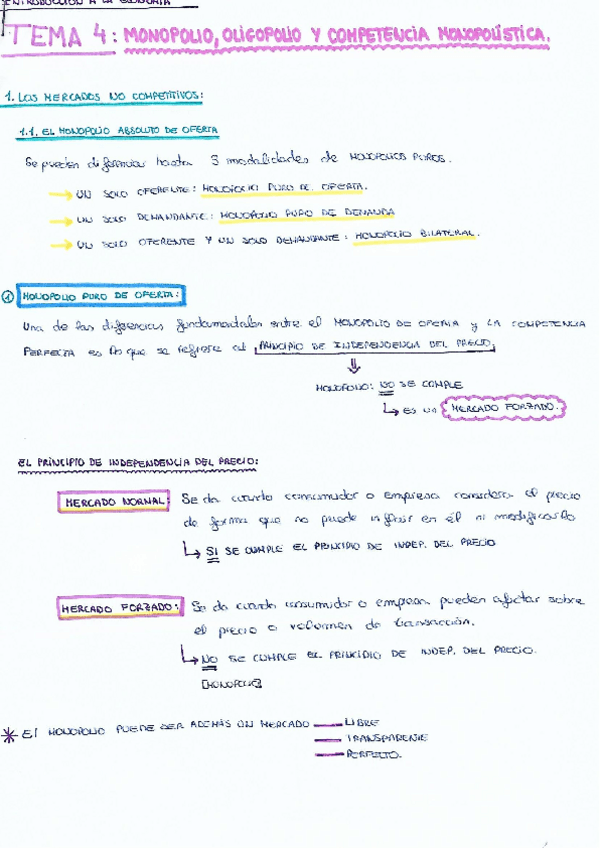 INTRODUCCIÓN A LA ECONOMÍA
TEMA 4: MONOPOLIO, OLIGOPOLIO Y COMPETENCIA MONOPOLÍSTICA.
1. LOS MERCADOS NO COMPETITIVOS:
1.1. EL MONOPOLIO ABSOLUTO DE OFERTA
Se pueden diferenciar hasta 3 modalidades de MONOPOLIOS PUROS.
UN SOLO OFERENTE: MONOPOLIO PURO DE OFERTA.
UN SOLO DEMANDANTE: MONOPOLIO PURO DE DEMANDA
UN SOLO OFERENTE Y UN SOLO DEMANDANTE: MONOPOLIO BILATERAL.
1 MONOPOLIO PURO DE OFERTA:
Una de las diferencias fundamentales entre el MONOPOLIO DE OFERTA y LA COMPETENCIA
PERFECTA es la que se refiere al PRINCIPIO DE INDEPENDENCIA DEL PRECIO,
MONOPOLIO: NO SE CUMPLE
ES UN MERCADO FORZADO.
EL PRINCIPIO DE INDEPENDENCIA DEL PRECIO:
MERCADO NORMAL: Se da cuando consumidor o empresa considera el precio
de forma que no puede influir en él ni modificarlo
SI SE CUMPLE EL PRINCIPIO DE INDEP. DEL PRECIO
MERCADO FORZADO: Se da cuando consumidor o empresa pueden afectar sobre
el precio o volumen de transacción.
NO SE CUMPLE EL PRINCIPIO DE INDEP. DEL PRECIO.
[MONOPOLIO]
* El MONOPOLIO PUEDE SER ADEMÁS UN MERCADO — LIBRE
— TRANSPARENTE
— PERFECTO.